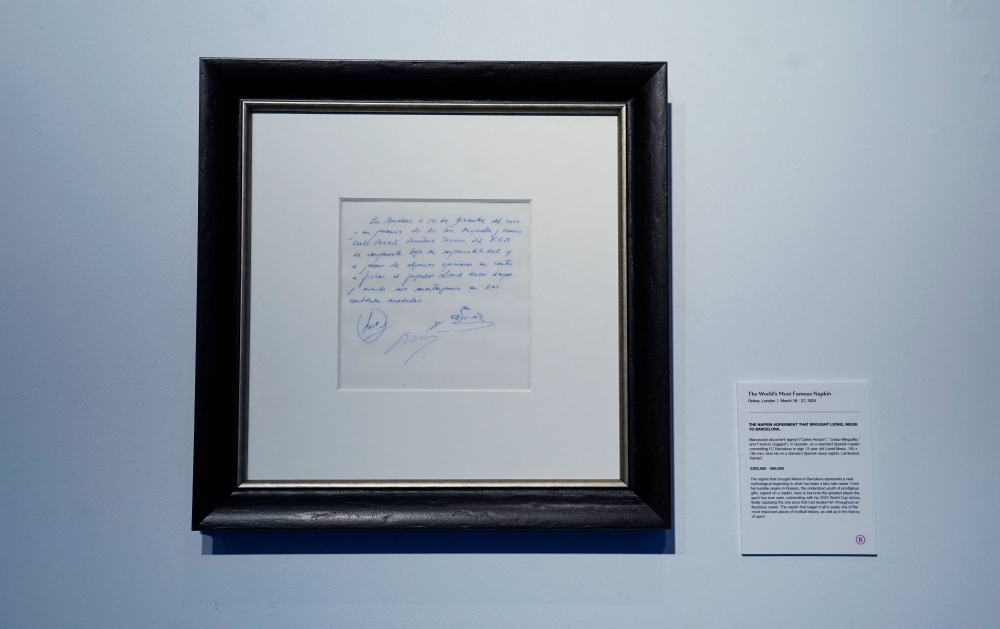 En Barcelona a 14 de Diciembre del 2000
en presencia de los Srs. Minguella y Horacio
Carles Rexach Secretario Técnico del F.C.B.
se compromete bajo su responsabilidad y
a pesar de algunas opiniones en contra
a fichar al jugador Lionel Messi siempre
y cuando nos mantengamos en las
cantidades acordadas.
The World's Most Famous Napkin
Online, London | March 18 - 27, 2024
THE NAPKIN AGREEMENT THAT BROUGHT LIONEL MESSI
TO BARCELONA.
Manuscript document signed ("Carles Rexach", "Josep Minguella,"
and "Horacio Gaggioli"), in Spanish, on a standard Spanish napkin
committing FC Barcelona to sign 13-year old Lionel Messi, 165 x
165 mm, blue ink on a standard Spanish waxy napkin. Laminated,
framed.
£300,000 - 500,000
The napkin that brought Messi to Barcelona represents a near
mythological beginning to what has been a fairy tale career. From
his humble origins in Rosario, the undersized youth of prodigious
gifts, signed on a napkin, rose to become the greatest player the
sport has ever seen, culminating with his 2022 World Cup victory,
finally capturing the one prize that had eluded him throughout an
illustrious career. The napkin that began it all is easily one of the
most important pieces of football history, as well as in the history
of sport.
B